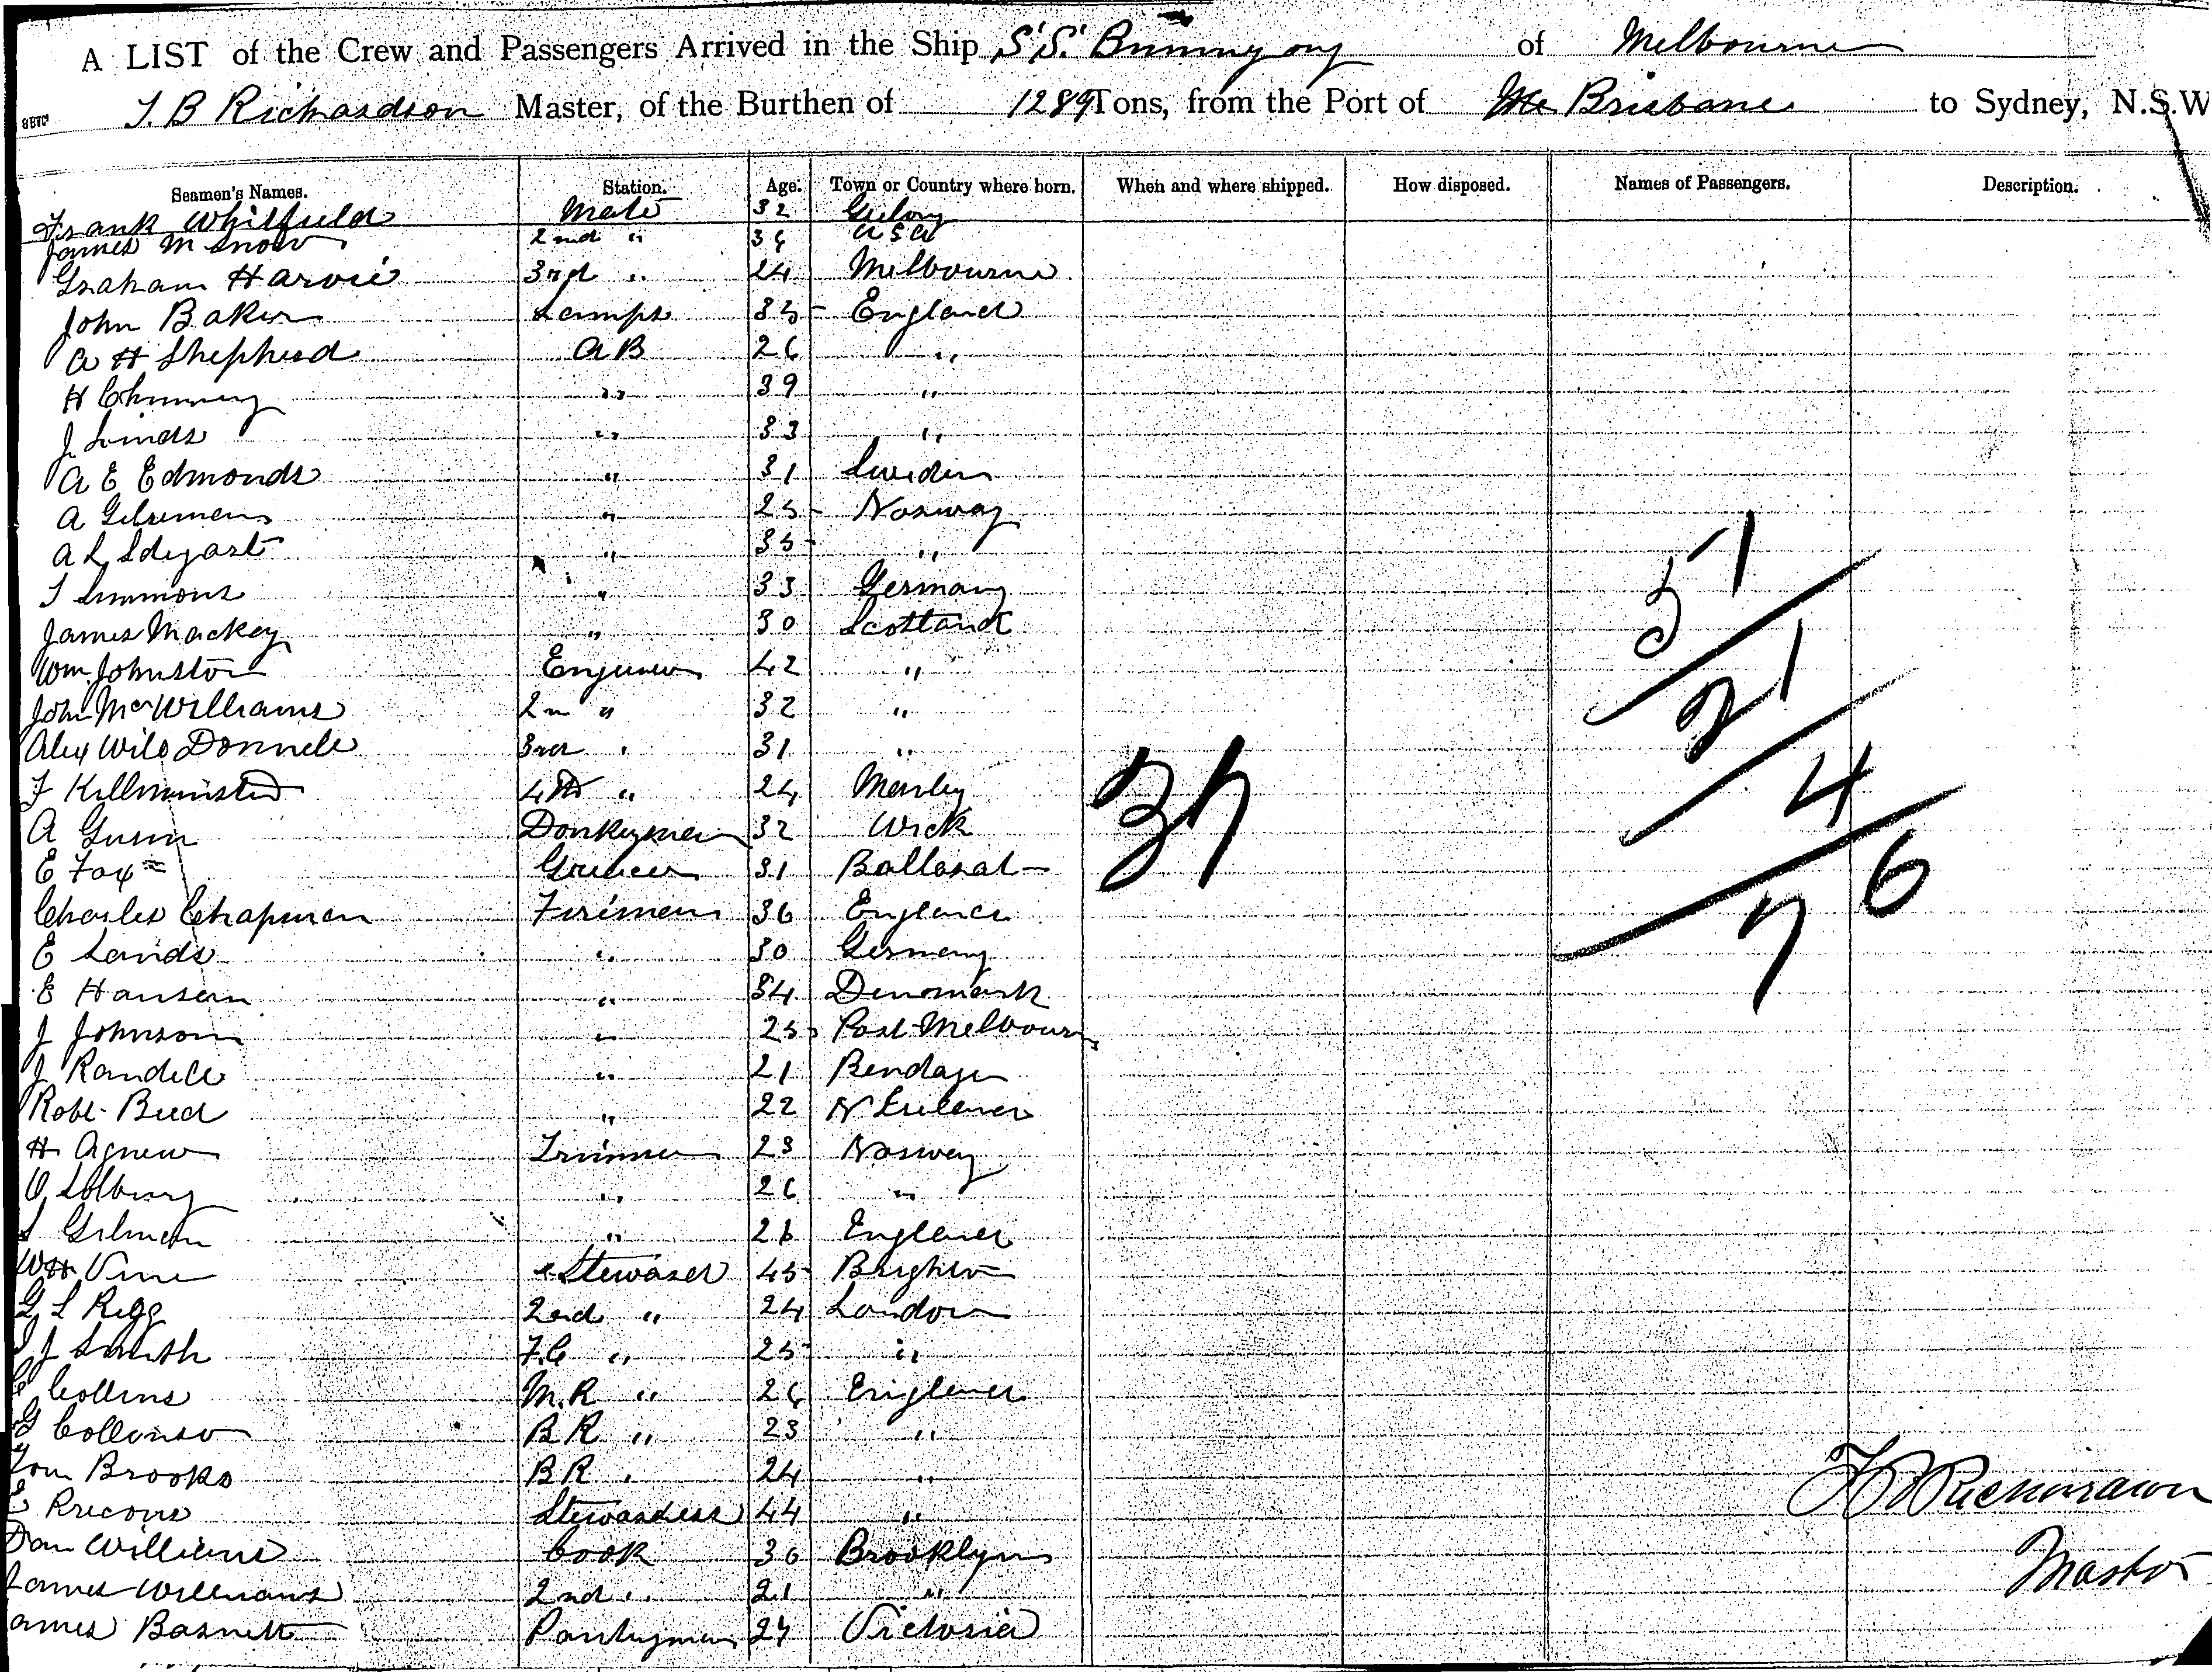 A LIST of the Crew and Passengers Arrived in the Ship S.S. Buninyong of Melbourne
T. B Richardson Master, of the Burthen of 1289 Tons, from the Port of Brisbane to Sydney, N.S.W
Seamen's Names. Station. Age. Town or Country where born. When and where shipped. How disposed. Names of Passengers. Description.
Frank Whitfield Mate 32 Geelong
James M Snow 2nd " 34 USA
Graham Harvie 3rd " 24 Melbourne
John Baker Lamps 35 England
A H Shepherd AB 26 "
H " 39 "
J Linds " 33 "
A E Edmonds " 31 Sweden
A " 25 Norway
A L " 35 "
T Simmons " 33 Germany
James Mackey " 30 Scotland
Wm Johnston Engineer 42 "
John McWilliams 2n " 32 "
Alex Donnell 3rd " 31 "
F Killminster 4th " 24 Manly
A Gunn Donkeyman 32 Wick
E Fox Greaser 31 Ballarat
Charles Chapman Fireman 36 England
E Sands " 30 Germany
E Hansen " 34 Denmark
J Johnson " 25 Port Melbourn
J Randell " 21 Bendigo
Robt Bird " 22 N Zealand
H Agnew Trimmer 23 Norway
O Solburg " 26 "
S Gilman " 26 England
WH Vine Steward 45 Brighton
G L Rigg 2nd " 24 London
J Smith F.C " 25 "
Collins M.R " 26 England
G BR " 23 "
Tom Brooks BR " 24 "
E Stewardess 44 "
Dan Williams Cook 36 Brooklyn
James Williams 2nd " 21 "
ames Basnett Pantryman 24 Victoria
37
51
21
4
76
T B Richardson
Master